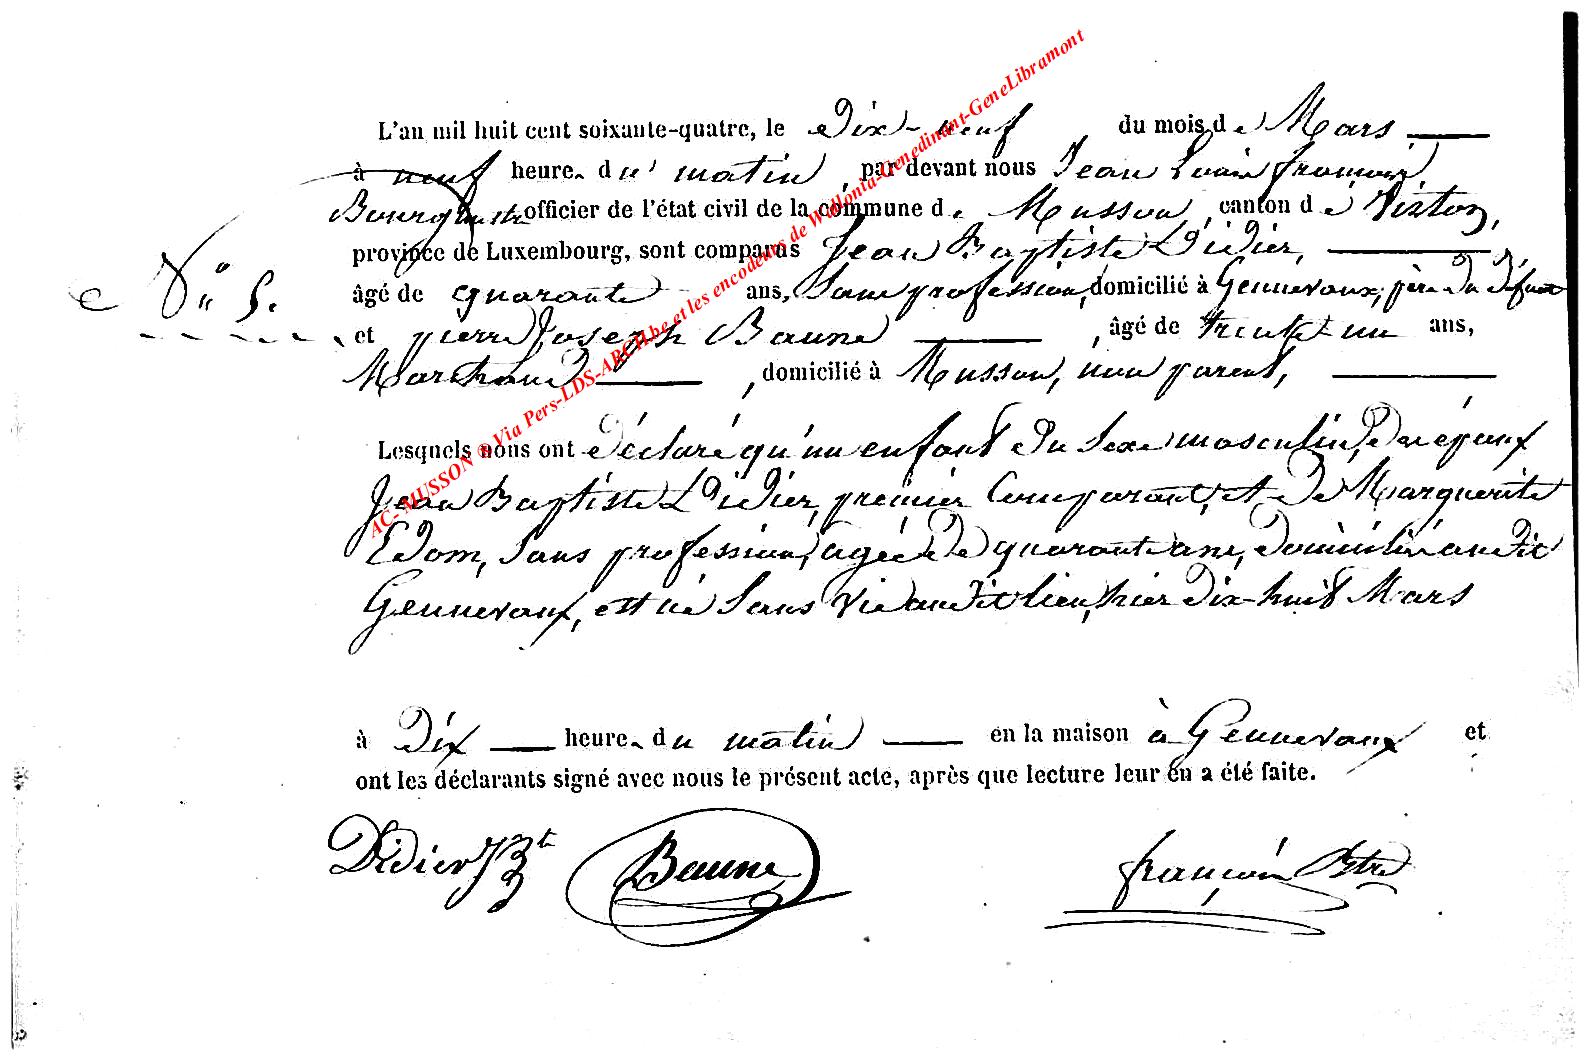 L'an mil huit cent soixante-quatre, le Dix-neuf du mois de Mars
à neuf heures du matin, par devant nous Jean Louis françois,
Bourgmestre officier de l'état civil de la commune de Musson, canton de Virton,
province de Luxembourg, sont comparus Jean Baptiste Didier,
N° 5. âgé de quarante ans, sans profession, domicilié à Gennevaux, père du défunt
et pierre Joseph Baune, âgé de trente un ans,
Marchand, domicilié à Musson, non parent,
Lesquels nous ont déclaré qu'un enfant du sexe masculin, de
Jean Baptiste Didier, premier Comparant, et de Marguerite
Edom, sans profession, agée de quarante ans, domiciliés audit
Gennevaux, est né sans vie audit lieu, hier Dix-huit Mars
à Dix heures du matin en la maison à Gennevaux et
ont les déclarants signé avec nous le présent acte, après que lecture leur en a été faite.
Didier J Bt Baune françois Btre
AC-MUSSON ® Via Pers-LDS-ARCH.be et les encodeurs de Wallonia-Genedinant-GeneLibramont